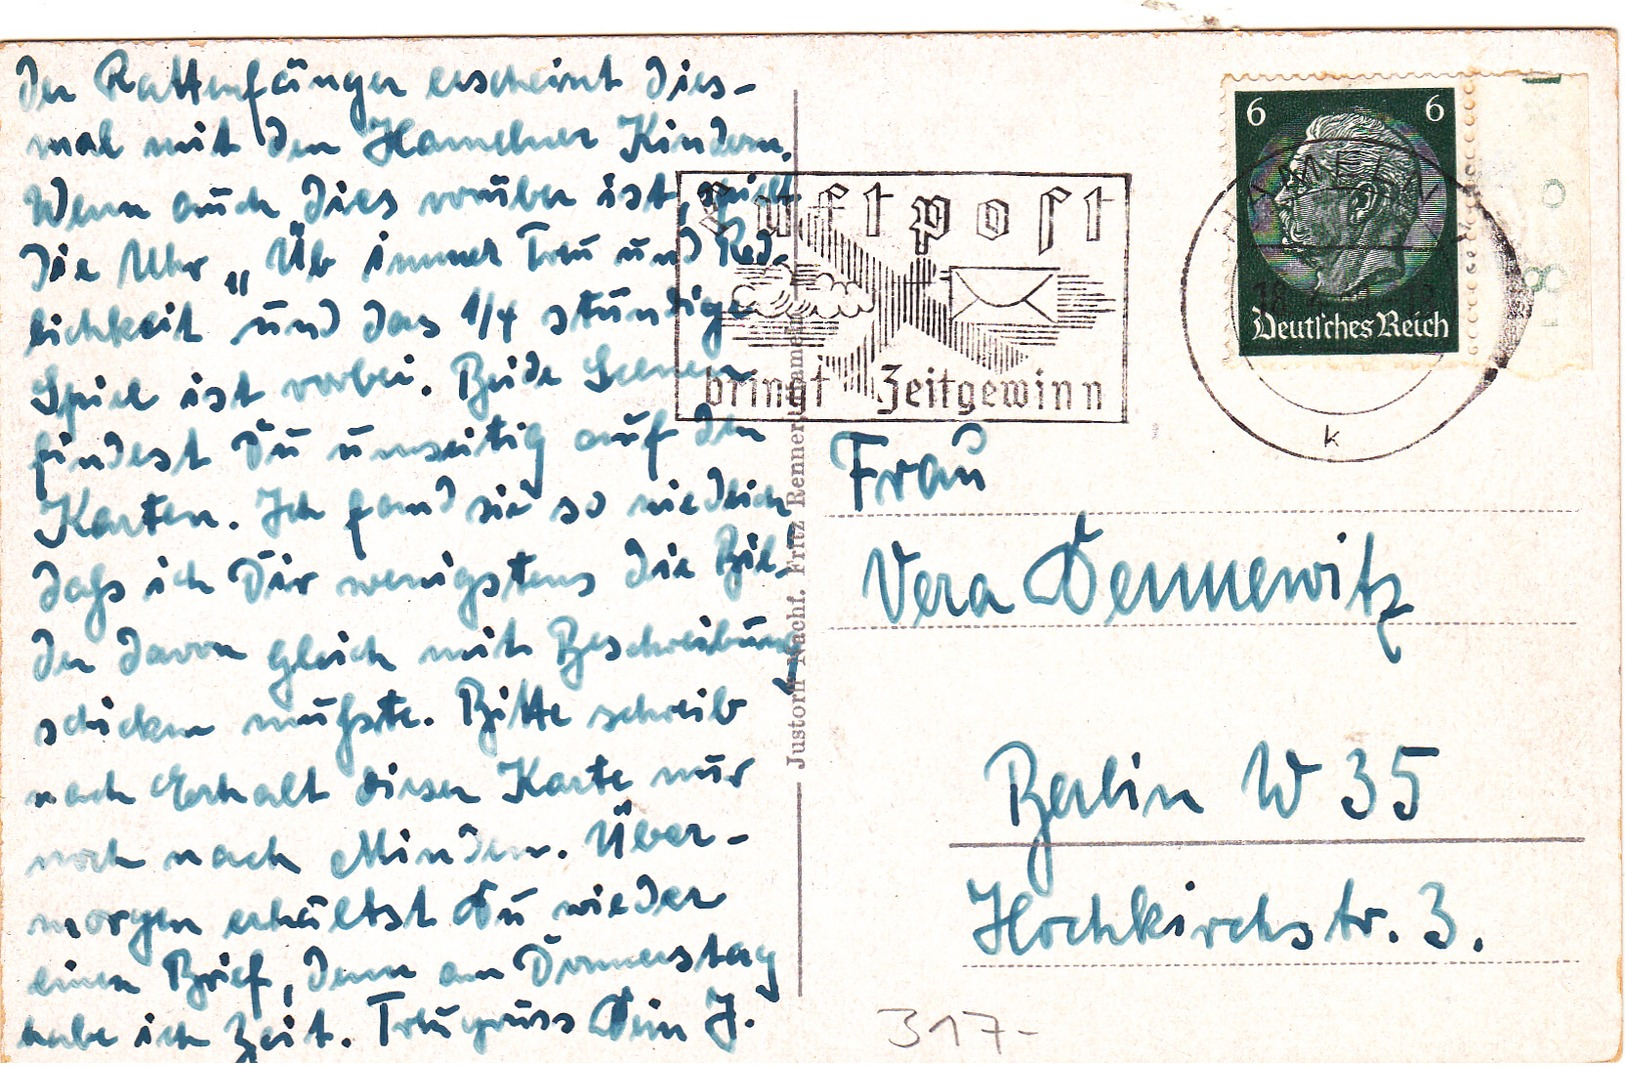 Der Rattenfänger erscheint dies-
mal mit den Hamelner Kindern.
Wenn auch dies vorüber ist, spielt
die Uhr „Üb immer Treu und Red-
lichkeit und das 1/4 stündige
Spiel ist vorbei. Beide Scenen
findest Du umseitig auf den
Karten. Ich fand sie so niedlich
dass ich Dir wenigstens die Bil-
der davon gleich mit Beschreibung
schicken musste. Bitte schreib
nach Erhalt dieser Karte nur
noch nach Minden. Über-
morgen erhältst Du wieder
einen Brief, denn am Donnerstag
habe ich Zeit. Treugruss Dein J.
Justorff Nachf. Fritz Renner, Hameln
Luftpost
bringt Zeitgewinn
6 6
Deutsches Reich
HAMELN
k
Frau
Vera Dennewitz
Berlin W 35
Hochkirchstr. 3.
317-